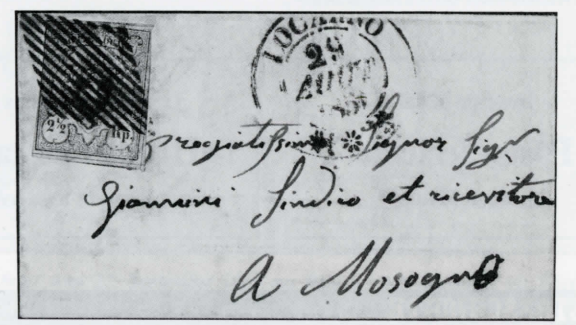 LOCARNO
29
AOUT
2½ Rp.
Pregiatissimo Signor Sigr
Giannini Sindico et ricevitore
A Mosogno